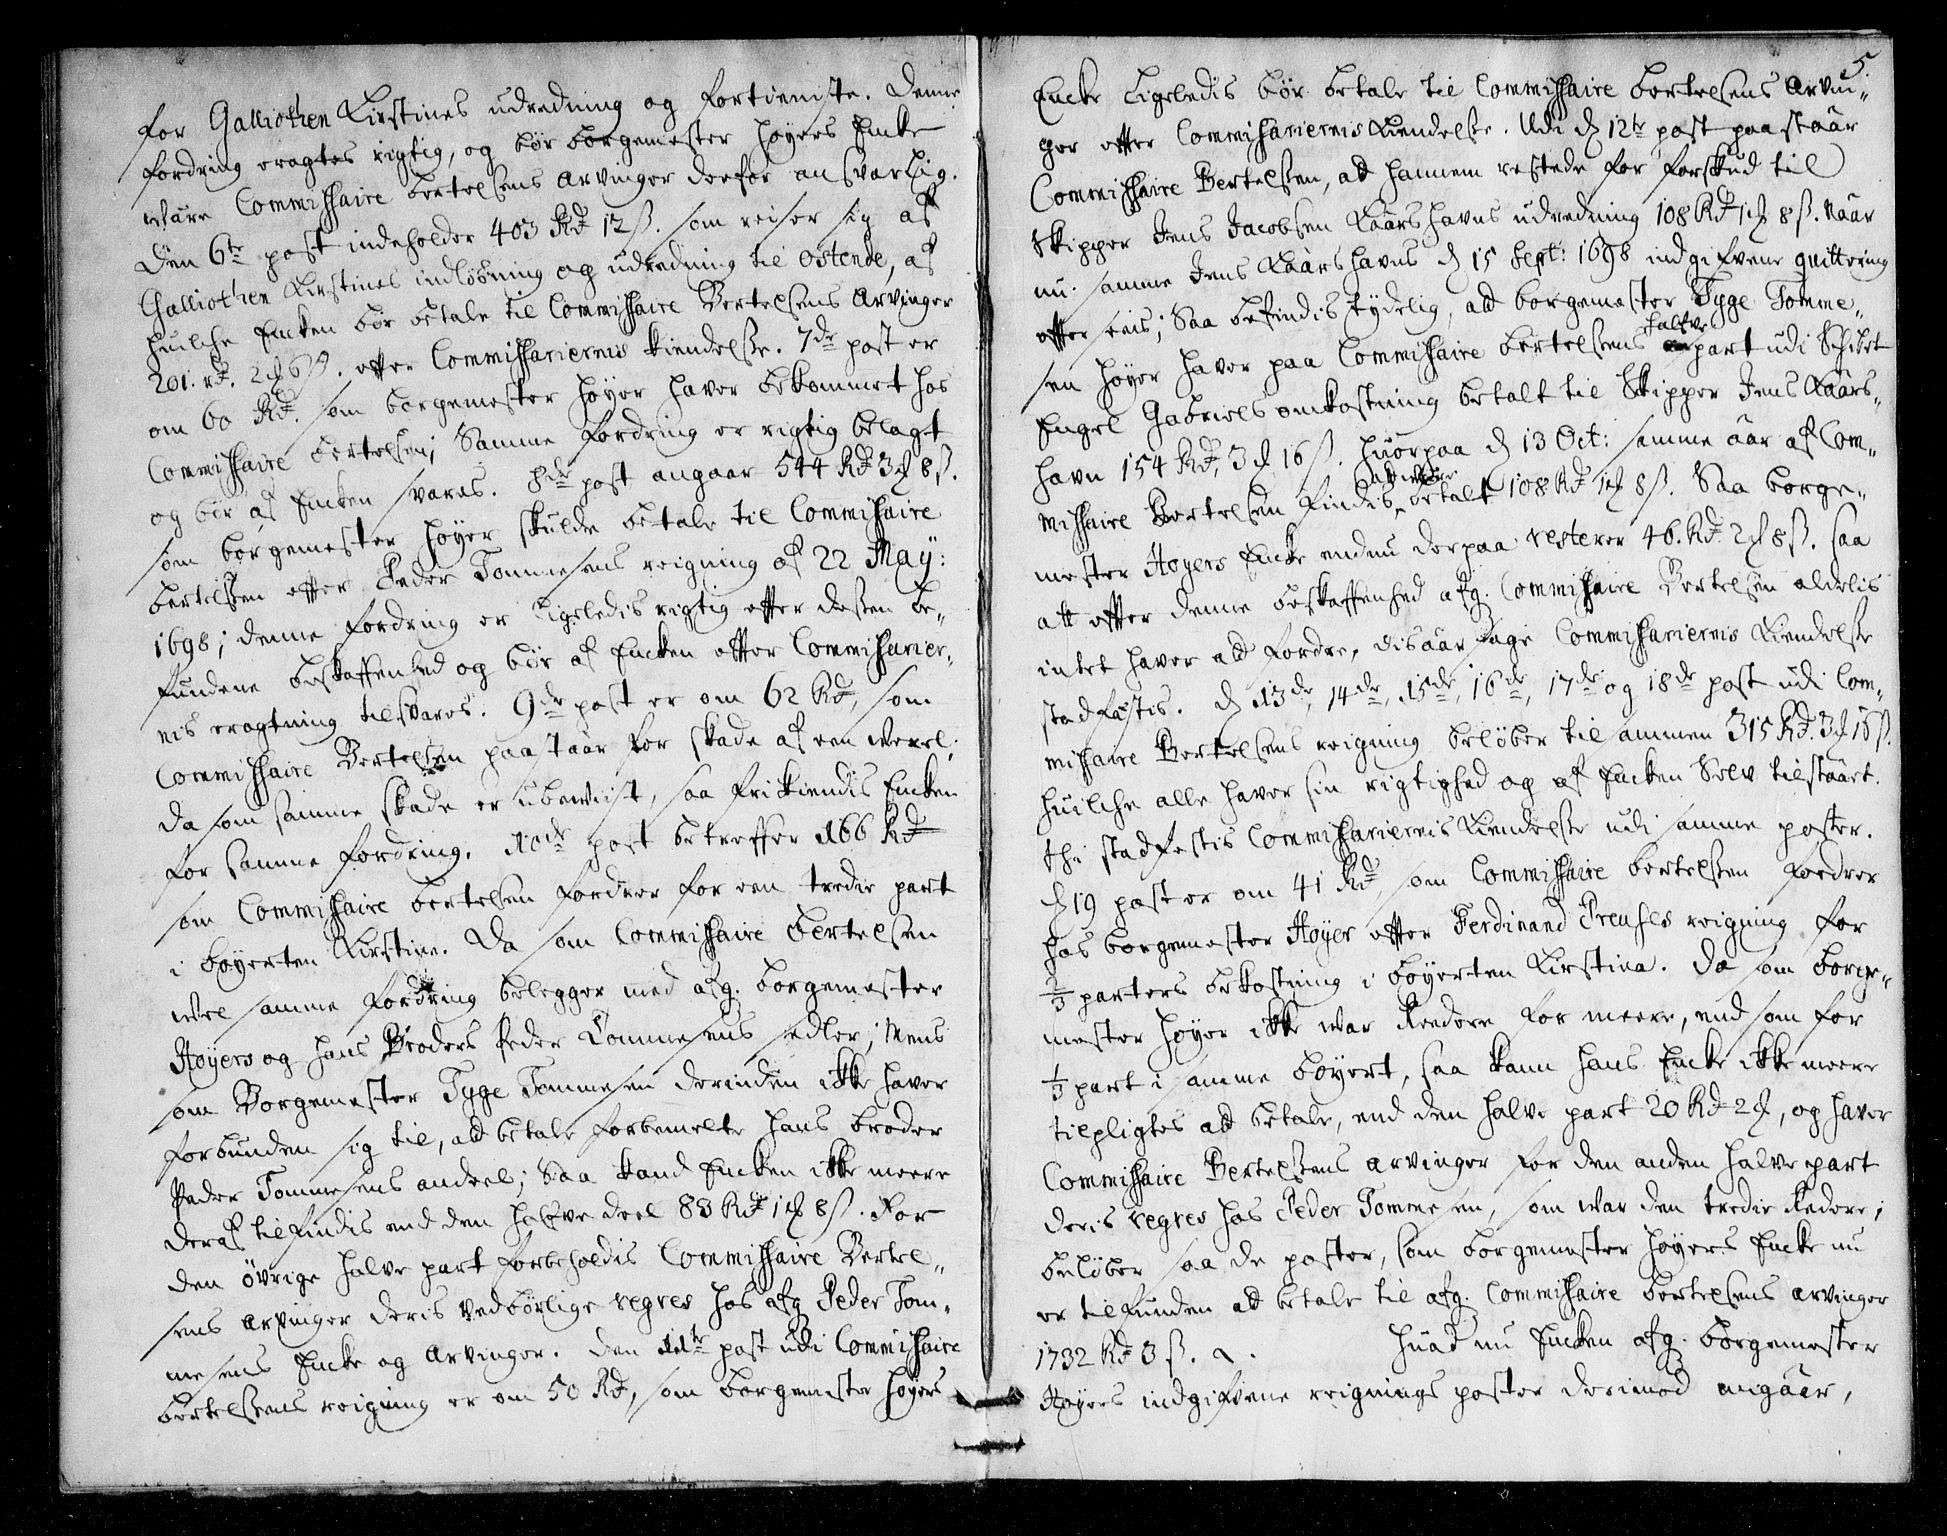 for Galliothen Kirstines udredning og fortieniste. Denne
fordring eragtes rigtig, og bør borgemester Høyers Encke
være Commissaire Bertelsens Arvinger derfor ansvarlig.
Den 6te post indeholder 403 Rd 12 ß. som reiser sig af
Galliothen Kirstines indløbning og udredning til Ostende, af
huilche Encken bør betale til Commissaire Bertelsens Arvinger
201. rd. 2 ₰ 6 ß. effter Commissariernis kiendelse. 7de post er
om 60 Rd. som borgemester Høyer haver bekommet hos
Commissaire Bertelsen; Samme fordring er rigtig belagt
og bør af Encken svares. 8de post angaar 544 Rd 3 ₰ 8 ß.
som borgemester Høyer skulde betale til Commissaire
Bertelsen effter Peder Tommesens reigning af 22 Maÿ:
1698; denne fordring er ligeledis rigtig effter dessen be-
fundene beskaffenhed og bør af Encken effter Commissarier-
nis eragtning tilsvares. 9de post er om 62 Rd, som
Commissaire Bertelsen paastaar for skade af een vexel;
Da som samme skade er ubeviist, saa frikiendis Encken
for samme fordring. 10de post betreffer 166 Rd
som Commissaire Bertelsen fordrer for een tredie part
i Boyerten Kirstine. Da som Commissaire Bertelsen
vel samme fordring belegger med afg. borgemester
Høyers og hans Broders Peder Tommesens sedler; Mens
som Borgemester Tyge Tommesen derinden ikke haver
forbunden sig til, ad betale forbemelte hans broder
Peder Tommesens andeel; Saa kand Encken ikke meere
deraf tilfindis end den halfve deel 83 Rd 1 ₰ 8 ß. For
den øvrige halve part forbeholdis Commissaire Bertel-
sens arvinger deris vedbørlige regres hos afg Peder Tom-
mesens Encke og Arvinger. Den 11te post udi Commissaire
Bertelsens reigning er om 50 Rd, som borgemester Høyers
5.
Encke ligeledis bør betale til Commissaire Bertelsens Arvin-
ger effter Commissariernis Kiendelse. Udi d 12te post paastaar
Commissaire Bertelsen, ad hannem restede for forskud til
Skipper Jens Jacobsen Kaarshavns udredning 108 Rd 1 ₰ 8 ß. Naar
nu samme Jens Kaarshavns d 15 Sept: 1698 indgifvene quittering
effter seis; Saa befindis tydelig, ad borgemester Tyge Tomme-
sen Høyer haver paa Commissaire Bertelsens halfve part udi Schibet
Engel Gabriels omkostning betalt til Skipper Jens Kaars-
havn 154 Rd, 3 ₰ 16 ß. Huorpaa d 13 Oct: samme aar af Com-
missaire Bertelsen findis betalt 108 Rd 1 ₰ 8 ß. Saa borge-
mester Høyers Encke endnu derpaa resterer 46. Rd 2 ₰ 8 ß. saa
att effter denne beskaffenhed afg. Commissaire Bertelsen aldelis
intet haver ad fordre, disaarsage Commissariernis Kiendelse
stadfestis. d 13de, 14de, 15de, 16de, 17de og 18de post udi Com-
missaire Bertelsens reigning beløber tilsammen 315 Rd. 3 ₰ 16 ß.
huilche alle haver sin rigtighed og af Encken Selv tilstaaet.
thi stadfestis Commissariernis Kiendelse udi samme poster.
d 19 post er om 41 Rd som Commissaire Bertelsen fordrer
hos borgemester Høyer effter Ferdinand Preusses reigning for
2/3 parters bekostning i Boyerten Kirstina. Da som borge-
mester Høyer ikke var Reedere for meere, end som for
1/3 part i samme boyert, saa kann hans Encke ikke meere
tilpligtes ad betale, end den halve part 20 Rd 2 ₰, og haver
Commissaire Bertelsens arvinger for den anden halve part
deris regres hos Peder Tommesen, som war den tredie Redere;
beløber saa de poster, som borgemester Høyers Encke nu
er tilfunden ad betale til afg. Commissaire Bertelsens arvinger
1732 Rd 3 ß. Huad nu Encken afg. borgemester
Høyers indgifvene reignings poster derimod angaar,